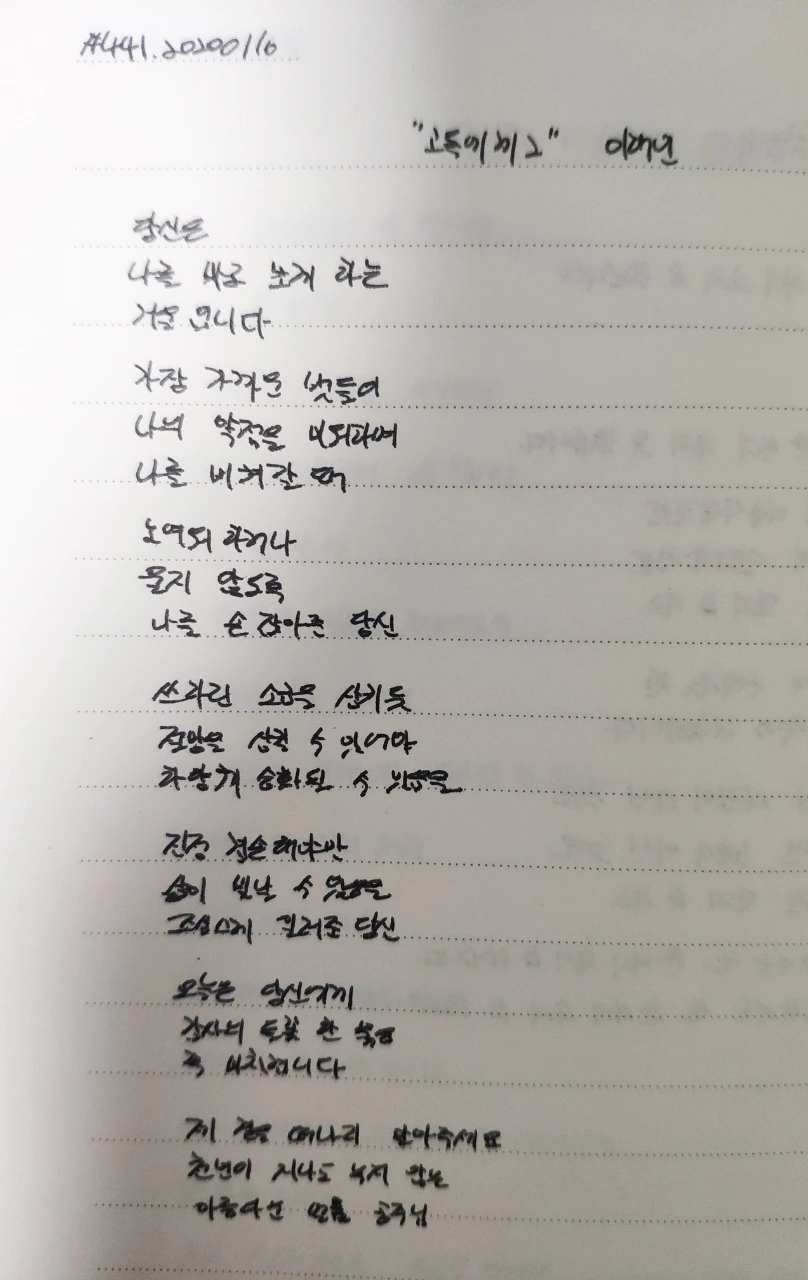 #441. 20200116
"고독에게 2" 이해인
당신은
나를 바로 보게 하는
거울입니다
가장 가까운 벗들이
나의 약점을 미워하며
나를 비켜갈 때
노여워 하거나
울지 않도록
나를 손 잡아준 당신
쓰라린 소금을 삼키듯
절망을 삼킬 수 있어야
하얗게 승화될 수 있음을
진정 겸손해야만
삶이 빛날 수 있음을
조심스레 일러준 당신
오늘은 당신에게
감사의 들꽃 한 묶음
꼭 바치렵니다
제 곁을 떠나지 말아주세요
천년이 지나도 녹지 않는
아름다운 얼음 공주님